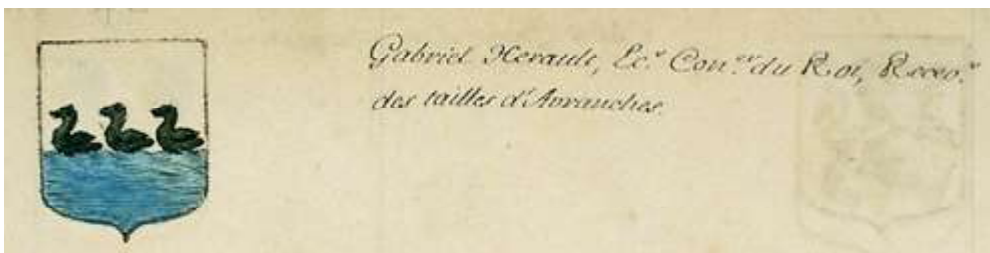 Gabriel Herault, Ec.r Con.er du Roi, Recev.r
des tailles d'Avranches.